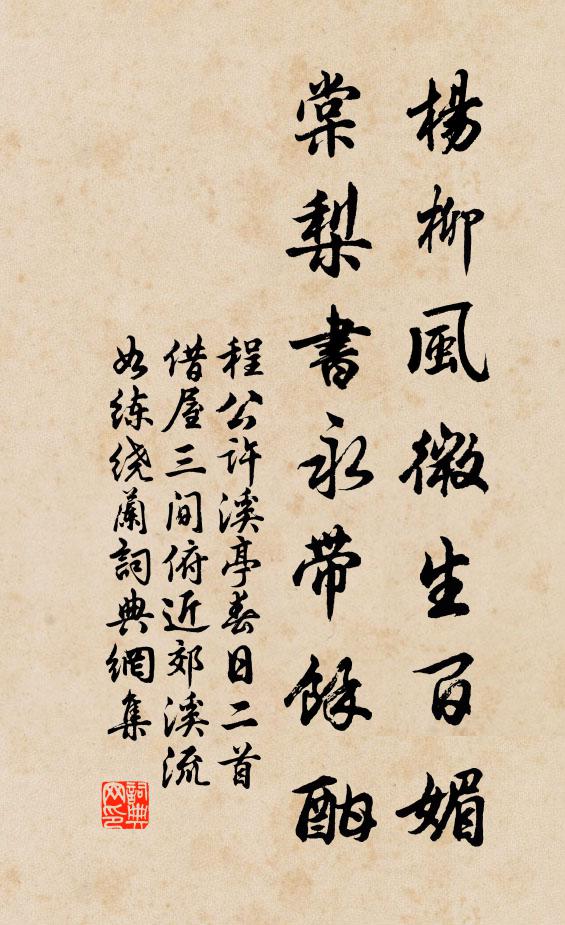 楊柳風微生百媚
棠梨書永帶餘酣
程公許溪亭春日二首
借屋三间俯近郊溪流
如练绕蘭詞典網集
詞典网印